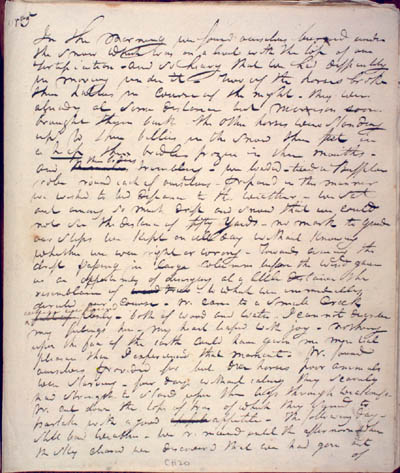 In the Morning we found ourselves buried under
the Snow which was on a level with the top of our
fortification - and so heavy that we had difficulty
in moving under it - two of the horses broke
their halters in course of the night - they were
already at some distance but Morrison soon
brought them back - the other horses were standing
up to their bellies in the Snow their feet in
a heap their bridles frozen in their mouths -
and trembling - we loaded - tied a Buffaloe
robe round each of ourselves - prepared in this manner
we wished to bid defiance to the weather - we set
out among so much drift and snow that we could
not see the distance of fifty yards - no mark to guide
our steps we kept on all day without knowing
whether we were right or wrong - toward evening the
drift passing in large columns before the wind gave
us an opportunity of decrying at a little distance the
resemblance of to which we immediately
directed our course - We came to a small Creek
plenty - both of wood and water - I cannot describe
my feelings here, my heart leaped with joy - nothing
upon the face of the earth could have given me more
pleasure than I experienced that moment - We found
ourselves provided for but our horses poor animals
were starving - four days without eating they scarcely
had strength to stand upon their legs through weakness
We cut down the tops of trees of which they began to
partake with a good appetite - The following day -
still bad weather - we remained until the afternoon when
the sky cleared we discovered that we had got out
of
CH20